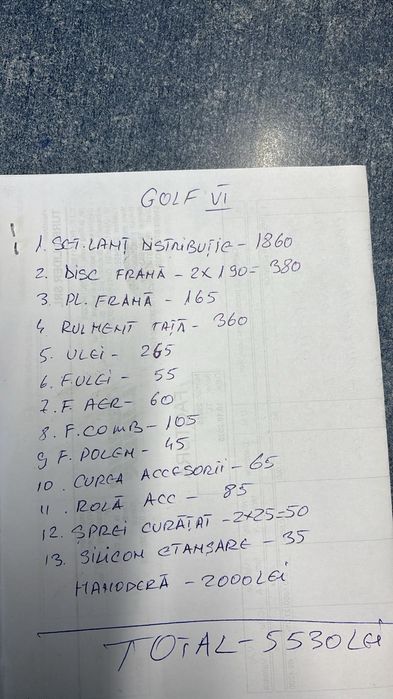 GOLF VI
1. SET.LANȚ DISTRIBUȚIE - 1860
2. DISC FRÂNĂ - 2X190= 380
3. PL. FRÂNĂ - 165
4 RULMENT FAȚĂ - 360
5. ULEI - 265
6. F.ULEI - 55
7. F. AER - 60
8. F.COMB - 105
9 F. POLEN - 45
10. CUREA ACCESORII - 65
11. ROLĂ ACC - 85
12. SPREI CURĂȚAT - 2X25=50
13. SILICON ETANȘARE - 35
MANODERĂ - 2000LEI
TOTAL - 5530LEI